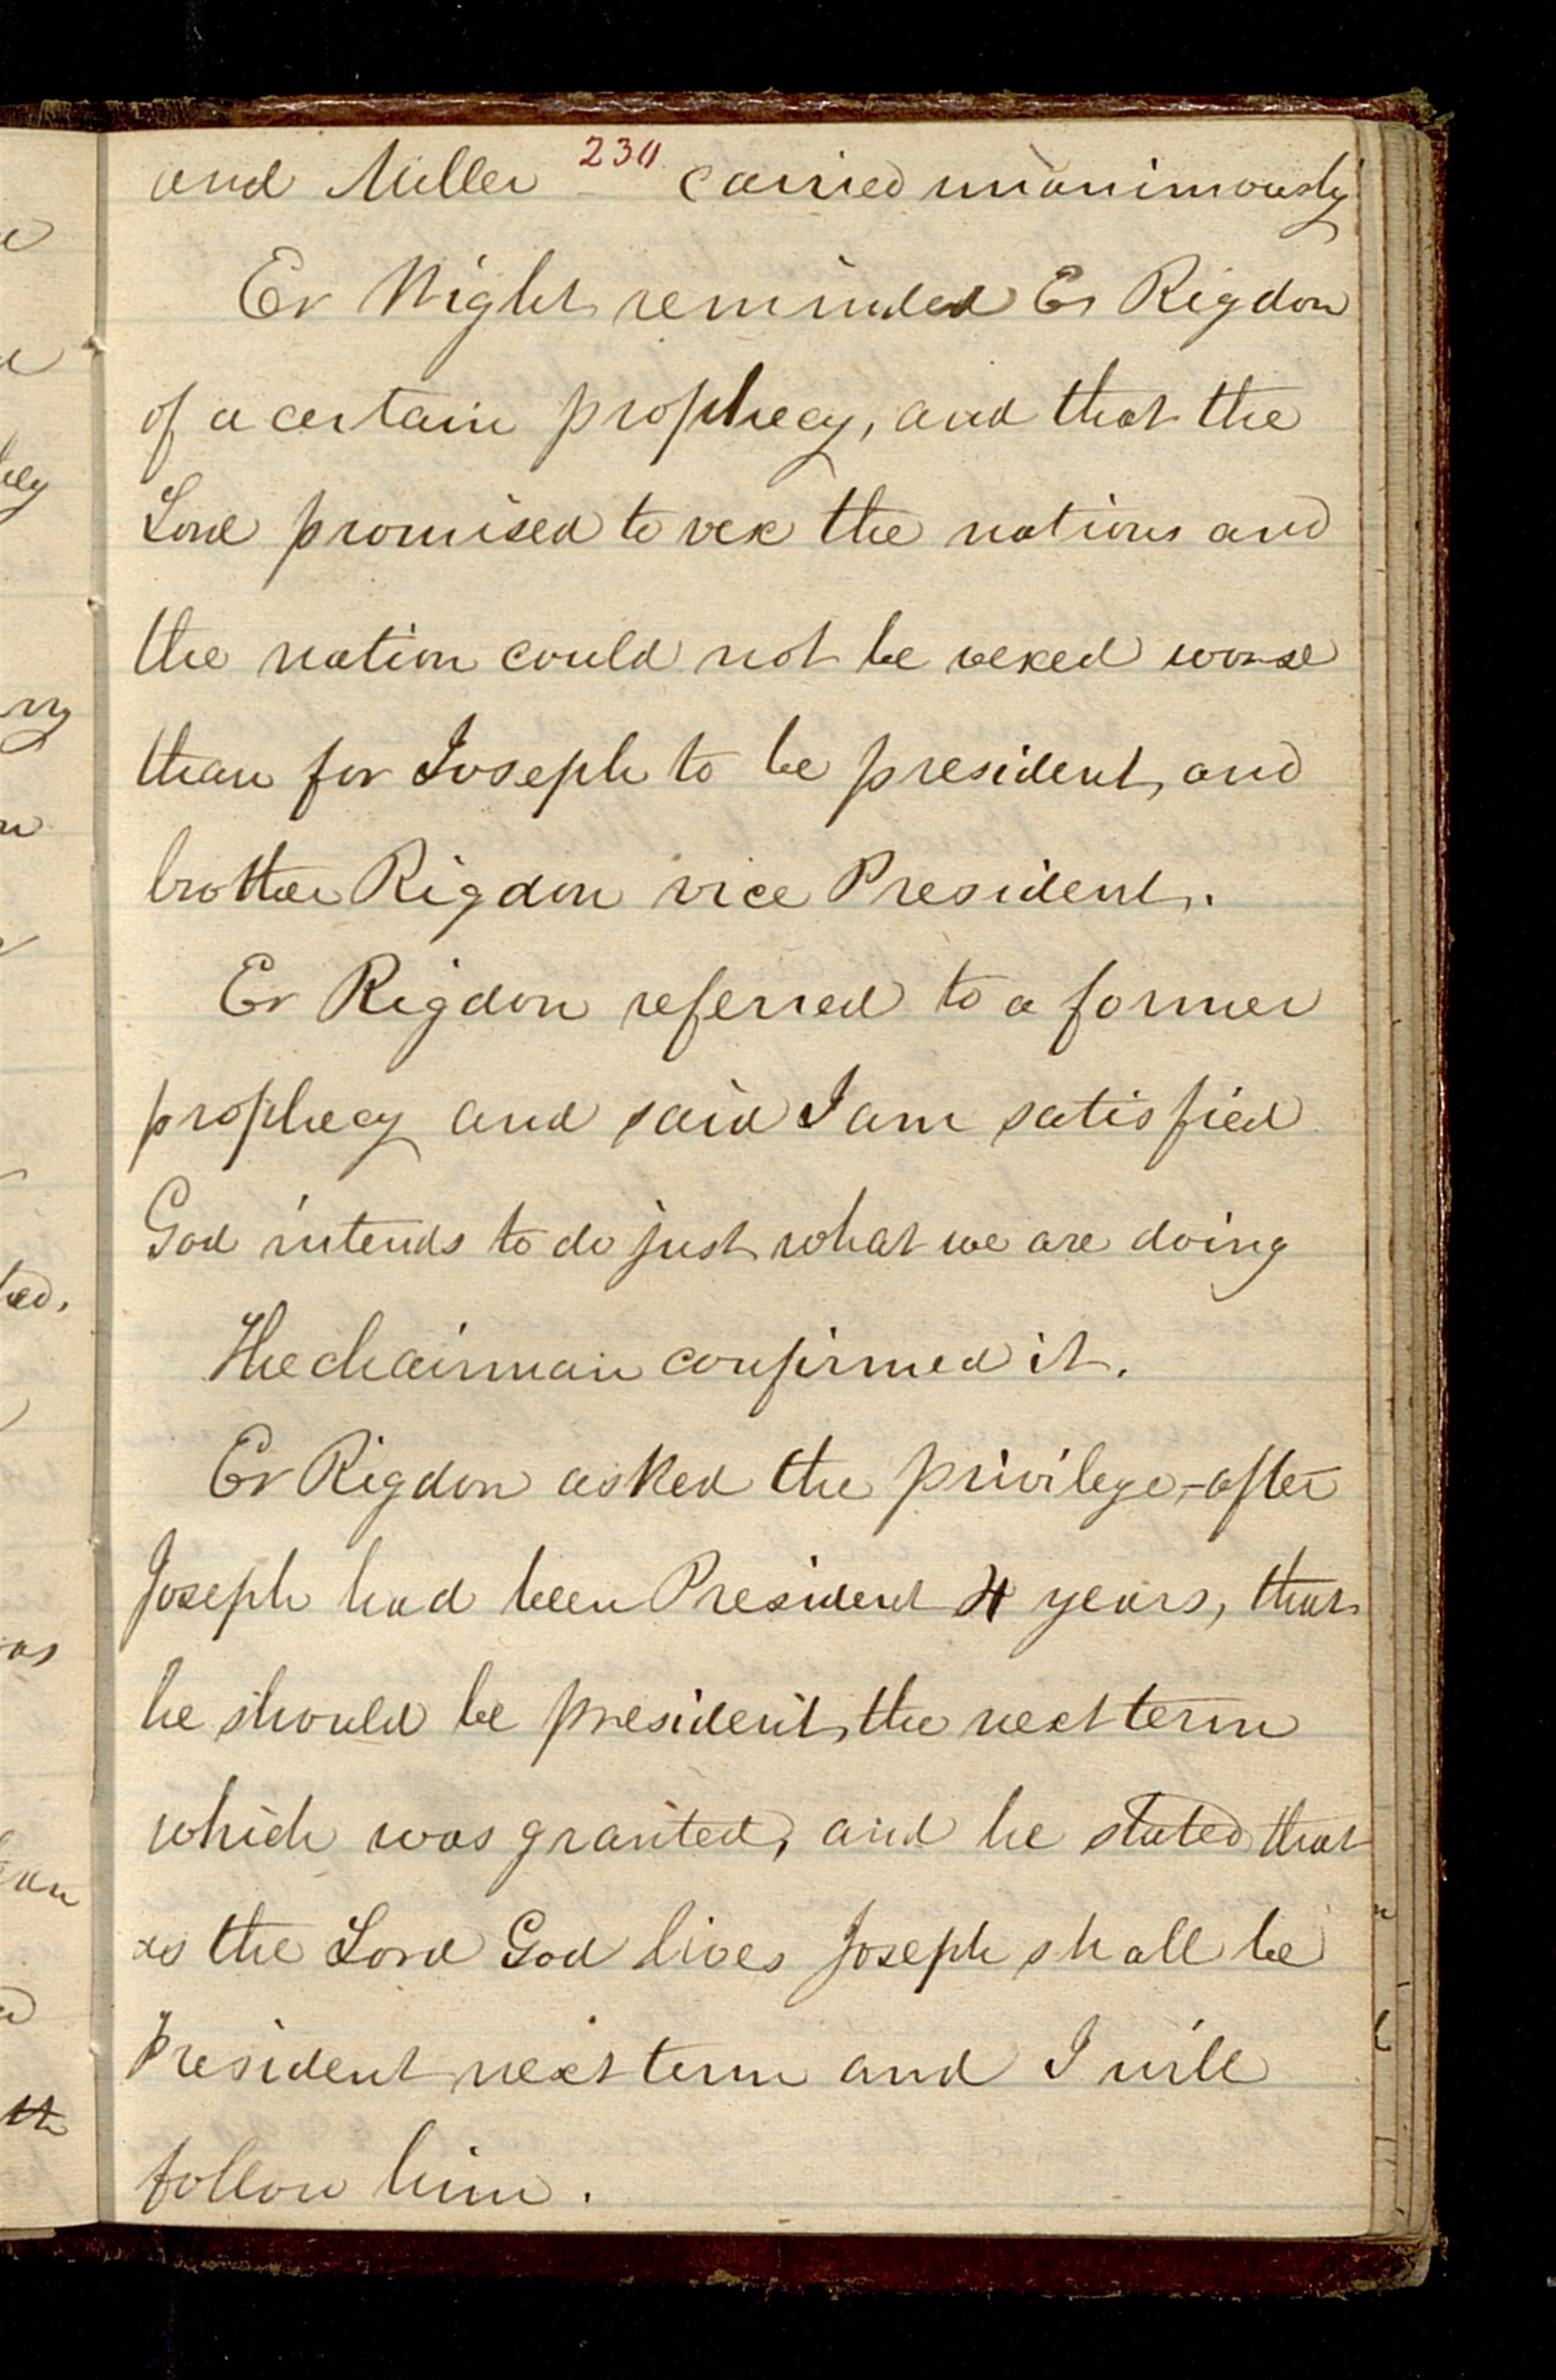 230
and Miller - carried unanimously
Er Wight reminded Er Rigdon
of a certain prophecy, and that the
Lord promised to vex the nations and
the nation could not be vexed worse
than for Joseph to be president, and
brother Rigdon vice President.
Er Rigdon referred to a former
prophecy and said I am satisfied
God intends to do just what we are doing
The chairman confirmed it.
Er Rigdon asked the privilege,-after
Joseph had been President 4 years, that
he should be president, the next term
which was granted, and he stated that
as the Lord God lives Joseph shall be
President next term and I will
follow him.